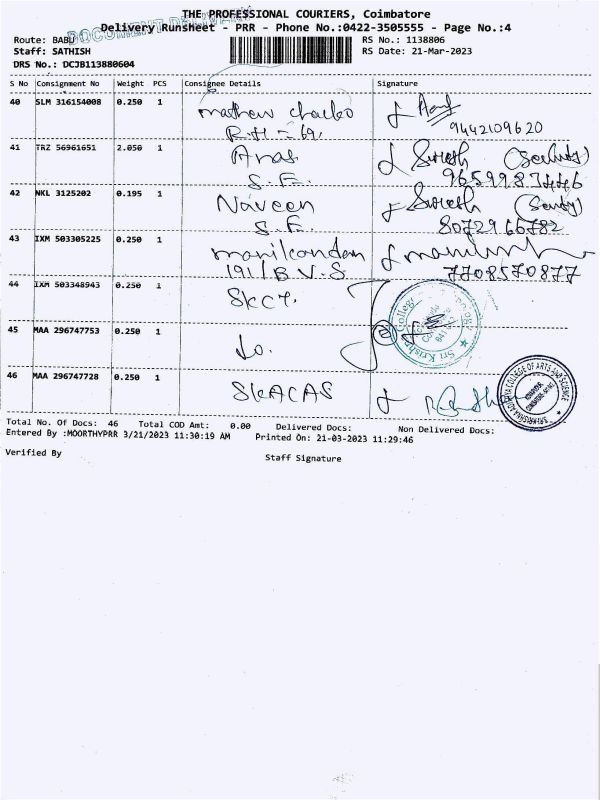 THE PROFESSIONAL COURIERS, Coimbatore
DOCUMENT DELIVERY
Delivery Runsheet - PRR - Phone No.:0422-3505555 - Page No.:4
Route: BABU
RS No.: 1138806
Staff: SATHISH
RS Date: 21-Mar-2023
DRS No.: DCJB113880604
S No Consignment No Weight PCS Consignee Details Signature
40 SLM 316154008 0.250 1 mathew chacko
R.H - 69.
9442109620
41 TRZ 56961651 2.050 1 Anas Suresh
S.F.
42 NKL 3125202 0.195 1 Naveen Suresh
S.F. 8072966782
43 IXM 503305225 0.250 1 manikandan
191/B V.S. 7708570877
44 IXM 503348943 0.250 1 SKCT.
Sri Krishna College Technology
45 MAA 296747753 0.250 1 do.
46 MAA 296747728 0.250 1 SKACAS
SRI KRISHNA ADITHYA COLLEGE OF ARTS AND SCIENCE
Total No. Of Docs: 46 Total COD Amt: 0.00 Delivered Docs: Non Delivered Docs:
Entered By :MOORTHYPRR 3/21/2023 11:30:19 AM Printed On: 21-03-2023 11:29:46
Verified By
Staff Signature